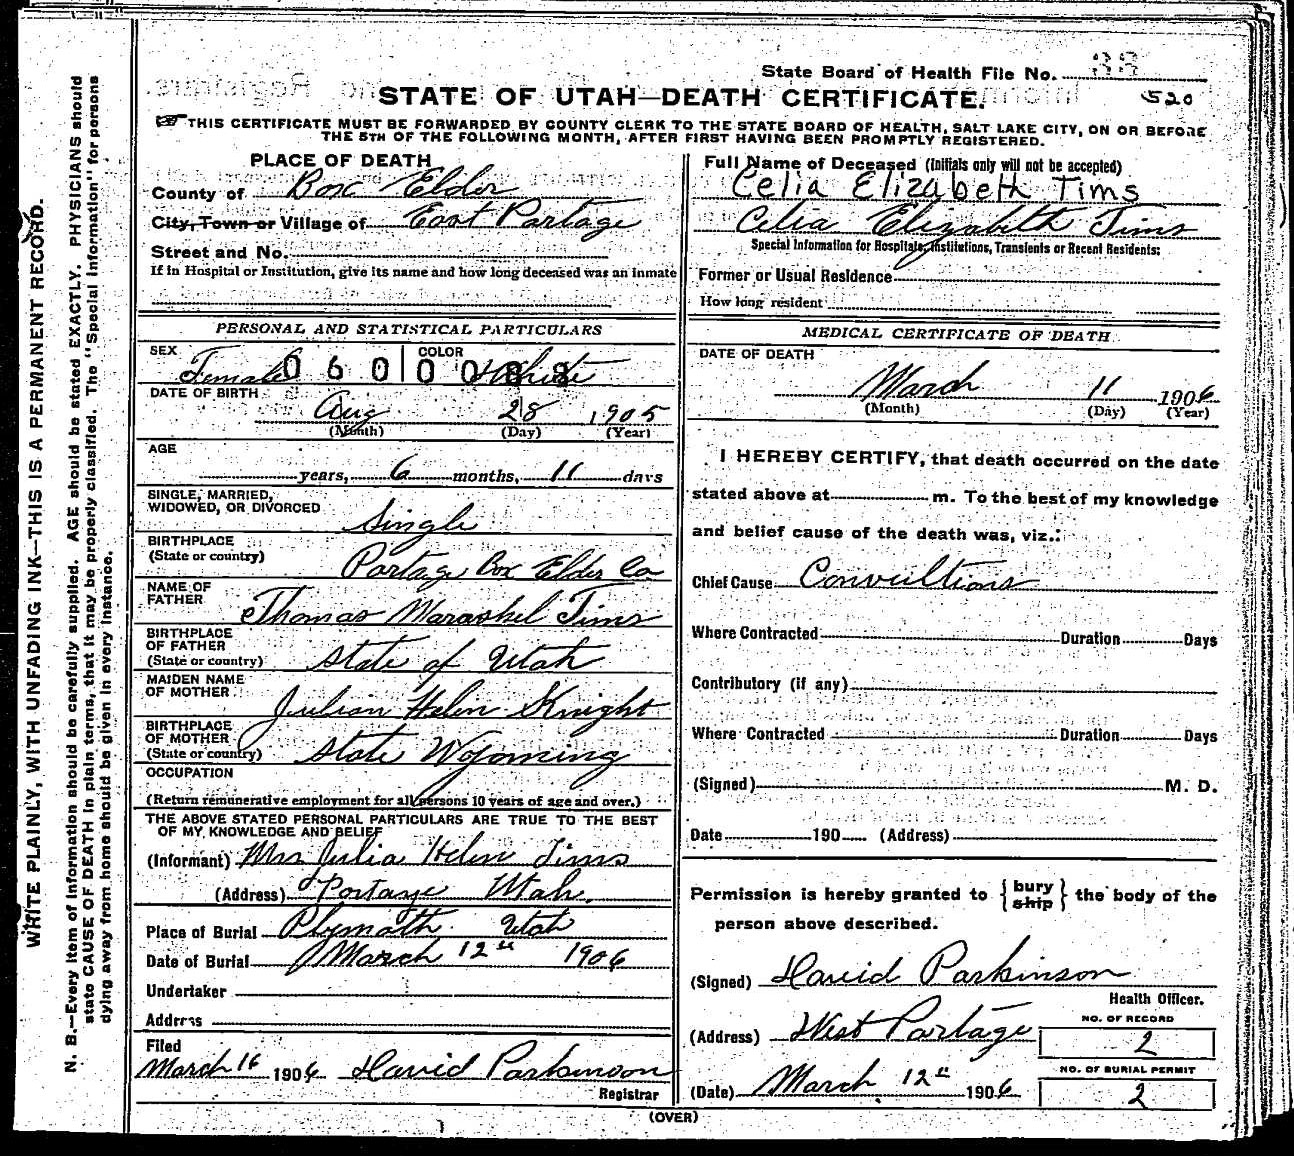 State Board of Health File No. 33
520
STATE OF UTAH—DEATH CERTIFICATE.
THIS CERTIFICATE MUST BE FORWARDED BY COUNTY CLERK TO THE STATE BOARD OF HEALTH, SALT LAKE CITY, ON OR BEFORE
THE 5TH OF THE FOLLOWING MONTH, AFTER FIRST HAVING BEEN PROMPTLY REGISTERED.
PLACE OF DEATH
County of Box Elder
City, Town or Village of East Portage
Street and No.
If in Hospital or Institution, give its name and how long deceased was an inmate
Full Name of Deceased (Initials only will not be accepted)
Celia Elizabeth Tims
Celia Elizabeth Tims
Special Information for Hospitals, Institutions, Transients or Recent Residents:
Former or Usual Residence
How long resident
PERSONAL AND STATISTICAL PARTICULARS
SEX Female
COLOR White
060 0088
DATE OF BIRTH
Aug 28 1905
(Month) (Day) (Year)
AGE
years, 6 months, 11 days
SINGLE, MARRIED,
WIDOWED, OR DIVORCED Single
BIRTHPLACE
(State or country) Portage Box Elder Co
NAME OF
FATHER Thomas Tims
BIRTHPLACE
OF FATHER
(State or country) State of Utah
MAIDEN NAME
OF MOTHER Julian Helen Knight
BIRTHPLACE
OF MOTHER
(State or country) State Wyoming
OCCUPATION
(Return remunerative employment for all persons 10 years of age and over.)
THE ABOVE STATED PERSONAL PARTICULARS ARE TRUE TO THE BEST
OF MY KNOWLEDGE AND BELIEF
(Informant) Mrs Julia Helen Tims
(Address) Portage Utah.
Place of Burial Plymoth Utah
Date of Burial March 12th 1906
Undertaker
Address
Filed
March 16 1906 David Parkinson
Registrar
MEDICAL CERTIFICATE OF DEATH
DATE OF DEATH
March 11 1906
(Month) (Day) (Year)
I HEREBY CERTIFY, that death occurred on the date
stated above at m. To the best of my knowledge
and belief cause of the death was, viz.:
Chief Cause Convultions
Where Contracted Duration Days
Contributory (if any)
Where Contracted Duration Days
(Signed) M. D.
Date 190 (Address)
Permission is hereby granted to {bury ship} the body of the
person above described.
(Signed) David Parkinson
Health Officer.
(Address) West Portage
NO. OF RECORD
2
(Date) March 12th 1906
NO. OF BURIAL PERMIT
2
(OVER)
WRITE PLAINLY, WITH UNFADING INK—THIS IS A PERMANENT RECORD.
N. B.—Every item of information should be carefully supplied. AGE should be stated EXACTLY. PHYSICIANS should
state CAUSE OF DEATH in plain terms, that it may be properly classified. The "Special Information" for persons
dying away from home should be given in every instance.